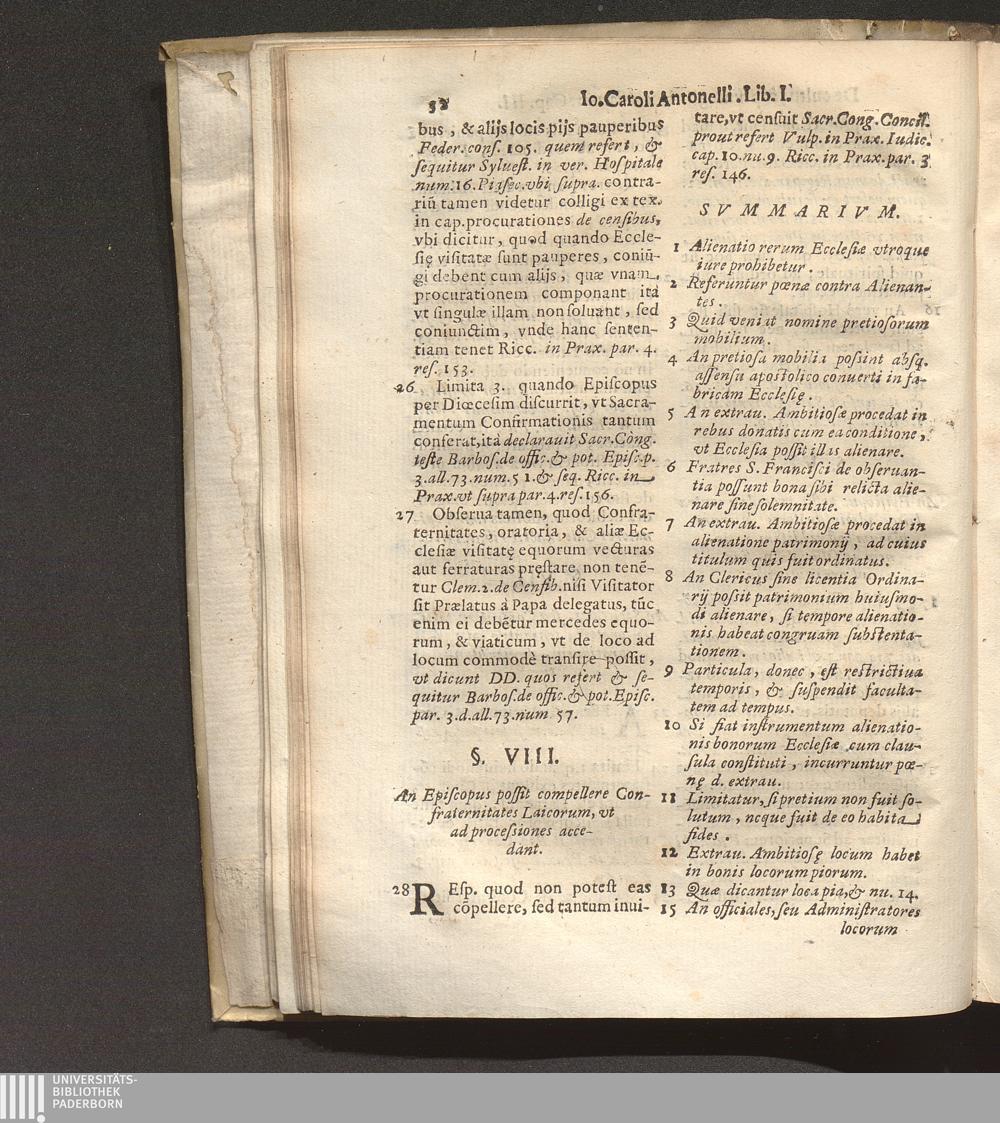 32
Io. Caroli Antonelli. Lib. I.
bus, & alijs locis pijs pauperibus
Feder. conſ. 105. quem refert, &
ſequitur Sylueſt. in ver. Hoſpitale
num. 16. Piaſec. vbi ſupra. contra-
riū tamen videtur colligi ex tex.
in cap. procurationes de cenſibus,
vbi dicitur, quod quando Eccle-
ſię viſitatæ ſunt pauperes, coniū-
gi debent cum alijs, quæ vnam
procurationem componant ita
vt ſingulæ illam non ſoluant, ſed
coniunctim, vnde hanc ſenten-
tiam tenet Ricc. in Prax. par. 4.
reſ. 153.
26 Limita 3. quando Epiſcopus
per Diœceſim diſcurrit, vt Sacra-
mentum Confirmationis tantum
conferat, ità declarauit Sacr. Cong.
teſte Barboſ. de offic. & pot. Epiſc. p.
3. all. 73. num. 51. & ſeq. Ricc. in
Prax. vt ſupra par. 4. reſ. 156.
27 Obſerua tamen, quod Confra-
ternitates, oratoria, & aliæ Ec-
cleſiæ viſitatę equorum vecturas
aut ferraturas pręſtare non tenē-
tur Clem. 2. de Cenſib. niſi Viſitator
ſit Prælatus à Papa delegatus, tūc
enim ei debētur mercedes equo-
rum, & viaticum, vt de loco ad
locum commodè tranſire poſſit,
vt dicunt DD. quos refert & ſe-
quitur Barboſ. de offic. & pot. Epiſc.
par. 3. d. all. 73. num 57.
§. VIII.
An Epiſcopus poſſit compellere Con-
fraternitates Laicorum, vt
ad proceſsiones acce-
dant.
28 REſp. quod non poteſt eas
cōpellere, ſed tantum inui-
tare, vt cenſuit Sacr. Cong. Concil.
prout refert Vulp. in Prax. Iudic.
cap. 10. nu. 9. Ricc. in Prax. par. 3
reſ. 146.
SVMMARIVM.
1 Alienatio rerum Eccleſiæ vtroque
iure prohibetur.
2 Referuntur pœnæ contra Alienan-
tes.
3 Quid veniat nomine pretioſorum
mobilium.
4 An pretioſa mobilia poſsint abſq.
aſſenſu apoſtolico conuerti in fa-
bricam Eccleſię.
5 An extrau. Ambitioſæ procedat in
rebus donatis cum ea conditione,
vt Eccleſia poſſit illas alienare.
6 Fratres S. Franciſci de obſeruan-
tia poſſunt bona ſibi relicta alie-
nare ſine ſolemnitate.
7 An extrau. Ambitioſæ procedat in
alienatione patrimonij, ad cuius
titulum quis fuit ordinatus.
8 An Clericus ſine licentia Ordina-
rij poſsit patrimonium huiuſmo-
di alienare, ſi tempore alienatio-
nis habeat congruam ſubſtenta-
tionem.
9 Particula, donec, eſt reſtrictiua
temporis, & ſuſpendit faculta-
tem ad tempus.
10 Si fiat inſtrumentum alienatio-
nis bonorum Eccleſiæ cum clau-
ſula conſtituti, incurruntur pœ-
nę d. extrau.
11 Limitatur, ſi pretium non fuit ſo-
lutum, neque fuit de eo habita
fides.
12 Extrau. Ambitioſę locum habet
in bonis locorum piorum.
13 Quæ dicantur loca pia, & nu. 14.
15 An officiales, ſeu Adminiſtratores
locorum
UNIVERSITÄTS-
BIBLIOTHEK
PADERBORN